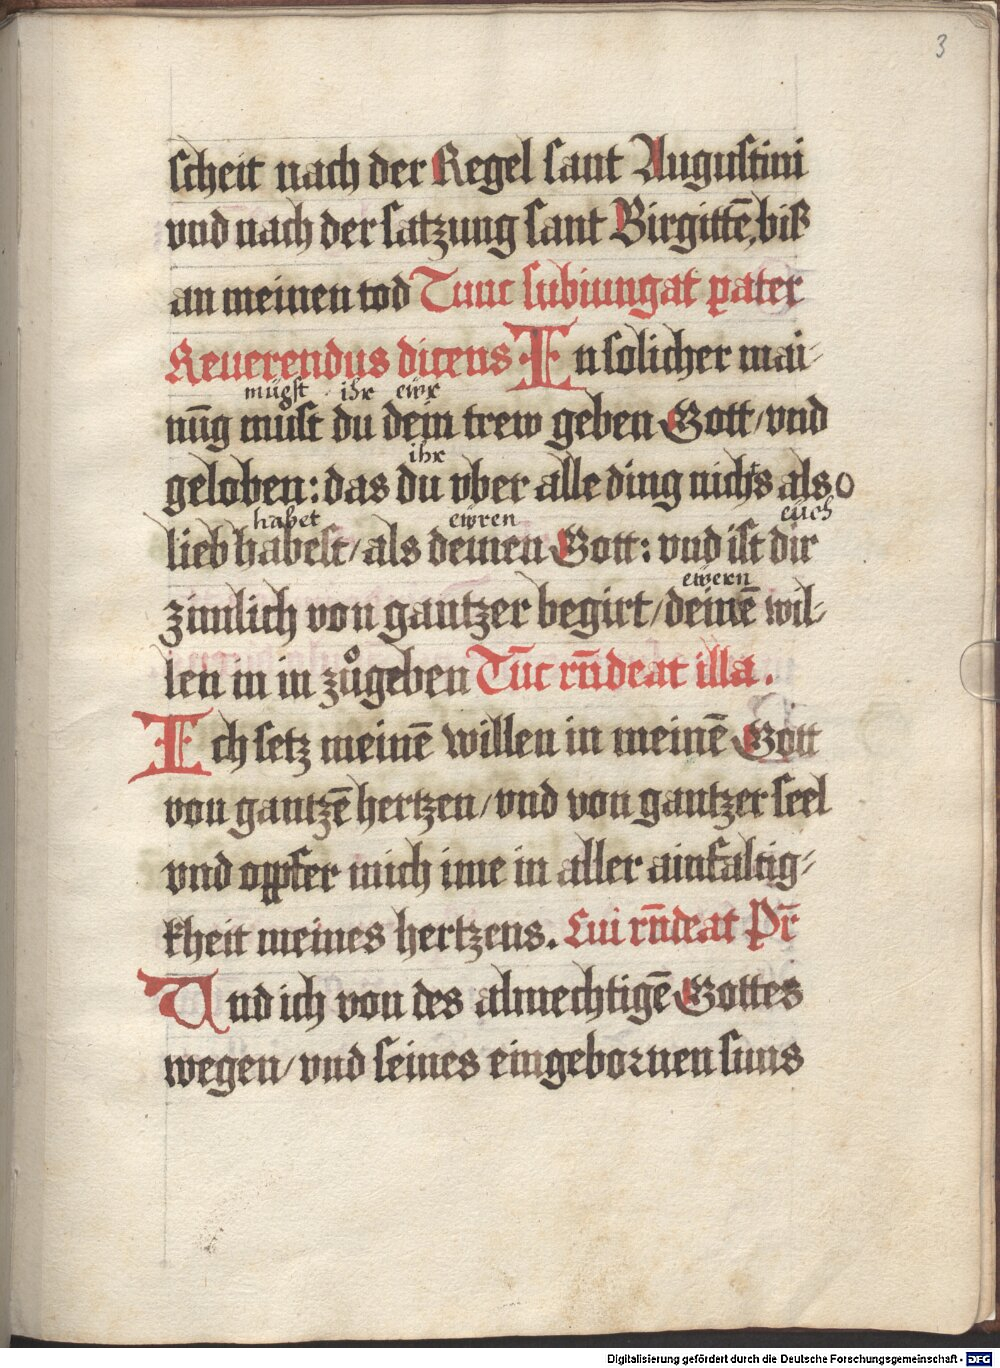 3
scheit nach der Regel sant Augustini
vnd nach der satzung sant Birgittē, biß
an meinen tod Tunc subiungat pater
Reuerendus dicens In solicher mai-
mügst ihr ewr
nūg must du dein trew geben Gott/ vnd
ihr
geloben: das du vber alle ding nichts also
habet ewren eüch
lieb habest/ als deinen Gott: vnd ist dir
ewern
zimlich von gantzer begirt/ deinē wil-
len in in zůgeben Tūc rn̄deat illa.
Ich setz meinē willen in meinē Gott
von gantzē hertzen/ vnd von gantzer seel
vnd opfer mich ime in aller ainfaltig-
kheit meines hertzens. Cui rn̄deat Pr̄
Vnd ich von des almechtigē Gottes
wegen/ vnd seines eingebornen suns
Digitalisierung gefördert durch die Deutsche Forschungsgemeinschaft - DFG